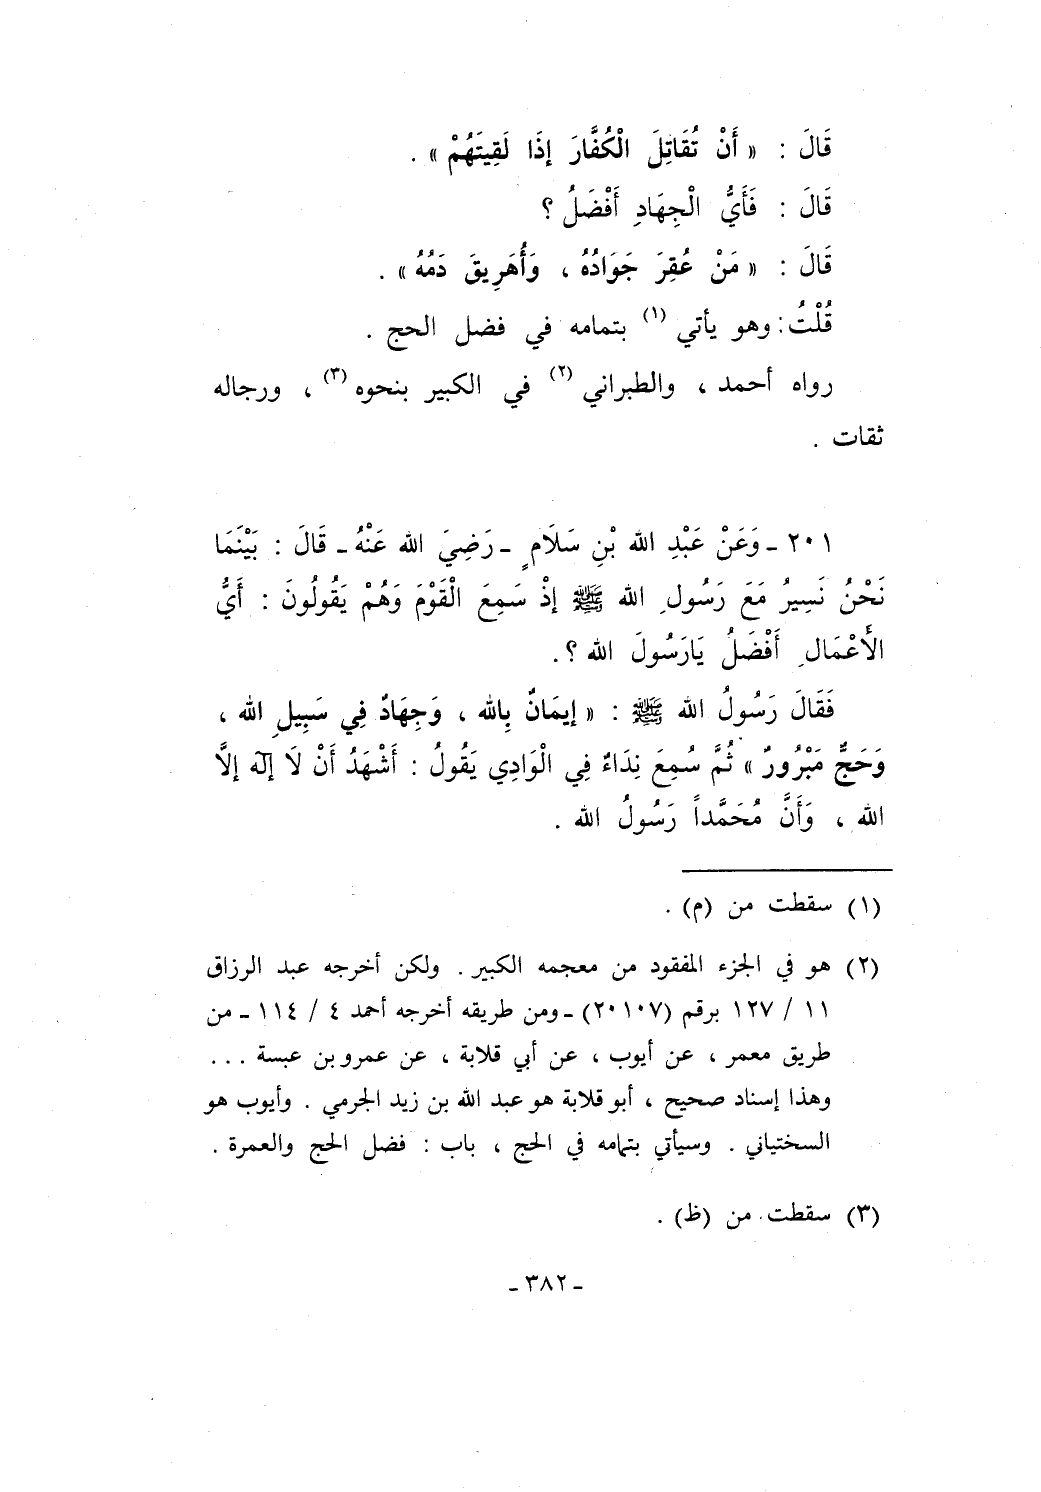 قَالَ : « أَنْ تُقَاتِلَ الْكُفَّارَ إِذَا لَقِيتَهُمْ » .
قَالَ : فَأَيُّ الْجِهَادِ أَفْضَلُ ؟
قَالَ : « مَنْ عُقِرَ جَوَادُهُ ، وَأُهَرِيقَ دَمُهُ » .
قُلْتُ : وهو يأتي (١) بتمامه في فضل الحج .
رواه أحمد ، والطبراني (٢) في الكبير بنحوه (٣) ، ورجاله
ثقات .
٢٠١ - وَعَنْ عَبْدِ الله بْنِ سَلَامٍ - رَضِيَ الله عَنْهُ - قَالَ : بَيْنَمَا
نَحْنُ نَسِيرُ مَعَ رَسُولِ الله ﷺ إِذْ سَمِعَ الْقَوْمَ وَهُمْ يَقُولُونَ : أَيُّ
الأَعْمَالِ أَفْضَلُ يَارَسُولَ الله ؟ .
فَقَالَ رَسُولُ الله ﷺ : « إِيمَانٌ بِالله ، وَجِهَادٌ فِي سَبِيلِ الله ،
وَحَجٌّ مَبْرُورٌ » ثُمَّ سُمِعَ نِدَاءٌ فِي الْوَادِي يَقُولُ : أَشْهَدُ أَنْ لَا إِلَهَ إِلاَّ
الله ، وَأَنَّ مُحَمَّداً رَسُولُ الله .
(١) سقطت من (م) .
(٢) هو في الجزء المفقود من معجمه الكبير . ولكن أخرجه عبد الرزاق
١١ / ١٢٧ برقم (٢٠١٠٧) - ومن طريقه أخرجه أحمد ٤ / ١١٤ - من
طريق معمر ، عن أيوب ، عن أبي قلابة ، عن عمرو بن عبسة ...
وهذا إسناد صحيح ، أبو قلابة هو عبد الله بن زيد الجرمي . وأيوب هو
السختياني . وسيأتي بتمامه في الحج ، باب : فضل الحج والعمرة .
(٣) سقطت من (ظ) .
- ٣٨٢ -